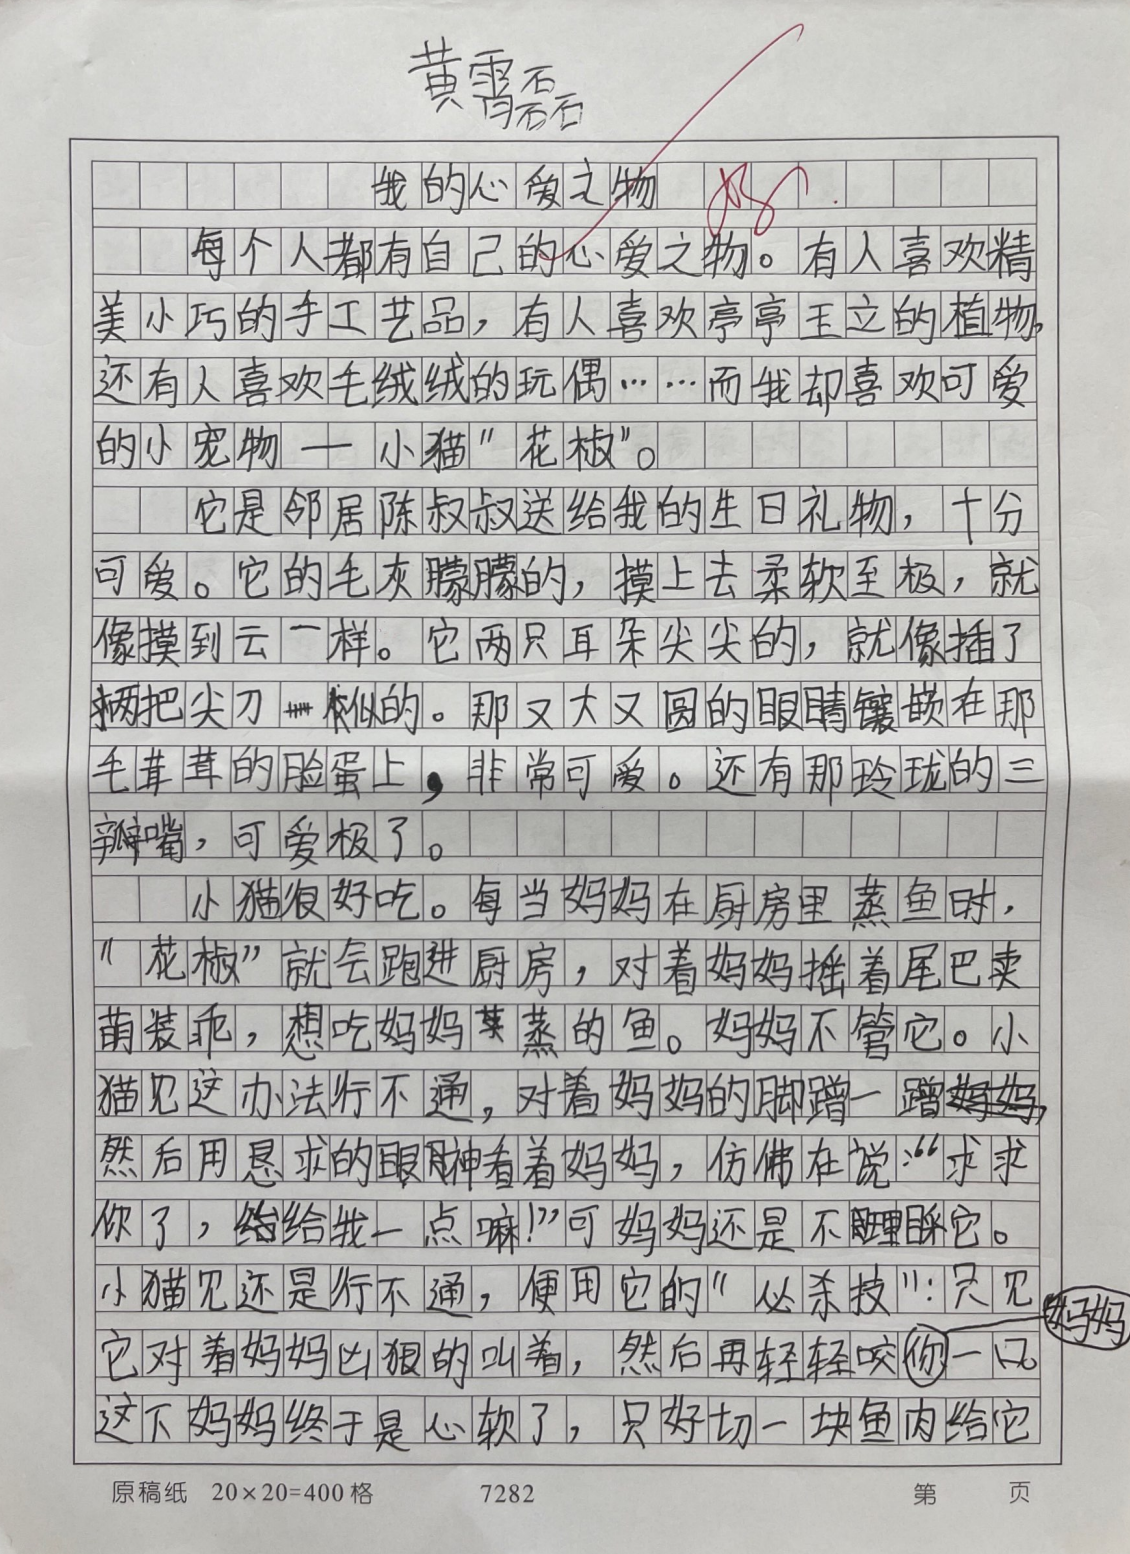 黄霄磊
我的心爱之物 好
每个人都有自己的心爱之物。有人喜欢精
美小巧的手工艺品，有人喜欢亭亭玉立的植物，
还有人喜欢毛绒绒的玩偶……而我却喜欢可爱
的小宠物一小猫“花椒”。
它是邻居陈叔叔送给我的生日礼物，十分
可爱。它的毛灰朦朦的，摸上去柔软至极，就
像摸到云一样。它两只耳朵尖尖的，就像插了
两把尖刀似的。那又大又圆的眼睛镶嵌在那
毛茸茸的脸蛋上，非常可爱。还有那玲珑的三
瓣嘴，可爱极了。
小猫很好吃。每当妈妈在厨房里蒸鱼时，
“花椒”就会跑进厨房，对着妈妈摇着尾巴卖
萌装乖，想吃妈妈蒸的鱼。妈妈不管它。小
猫见这办法行不通，对着妈妈的脚蹭一蹭，
然后用恳求的眼神看着妈妈，仿佛在说：“求求
你了，给我一点嘛！”可妈妈还是不理睬它。
小猫见还是行不通，便用它的“必杀技”：只见
它对着妈妈凶狠的叫着，然后再轻轻咬你一口
妈妈
这下妈妈终于是心软了，只好切一块鱼肉给它
原稿纸 20×20=400格 7282 第 页